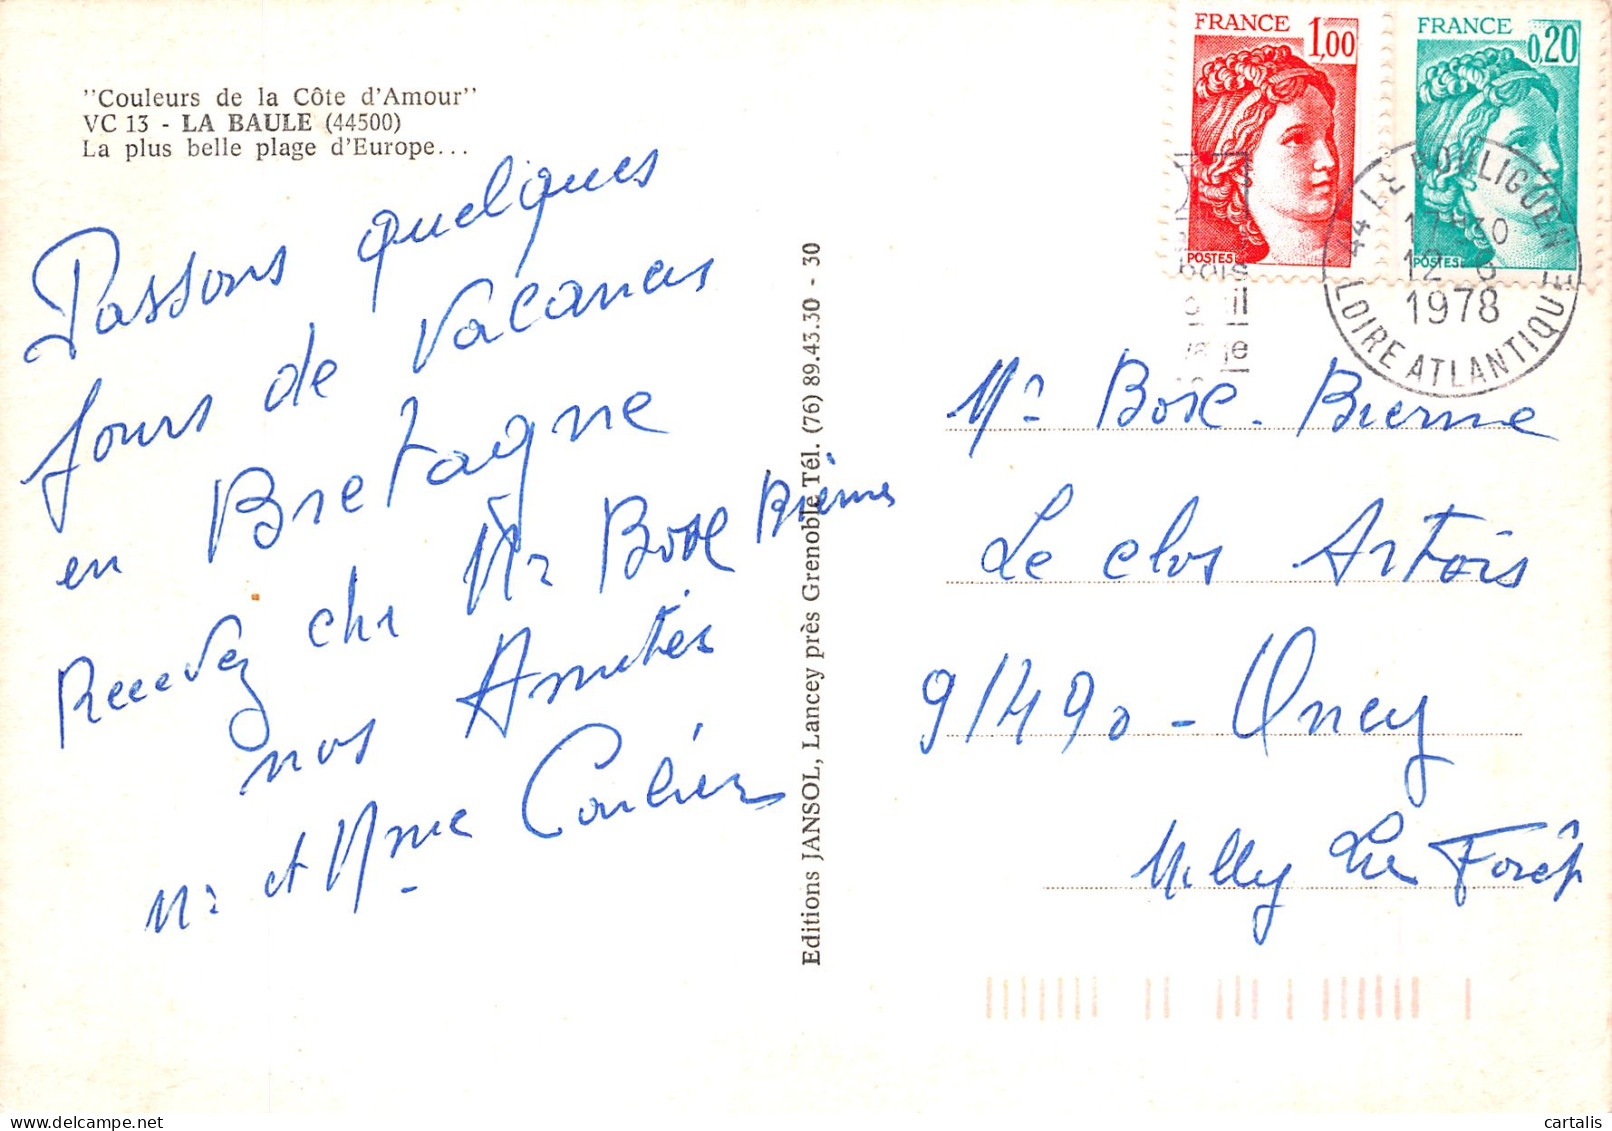 "Couleurs de la Côte d'Amour"
VC 13 - LA BAULE (44500)
La plus belle plage d'Europe...
Passons quelques
jours de vacances
en Bretagne
Recevez cher Mr Bose Bierne
nos Amitiés
Mr et Mme Coulier
Editions JANSOL, Lancey près Grenoble Tél. (76) 89.43.30 - 30
FRANCE 1,00
POSTES
FRANCE 0,20
POSTES
44 LE POULIGUEN
17H30
12 - 6
1978
LOIRE ATLANTIQUE
Mr Bose - Bierne
Le clos Artois
91490 - Oncy
Milly La Forêt
cartalis